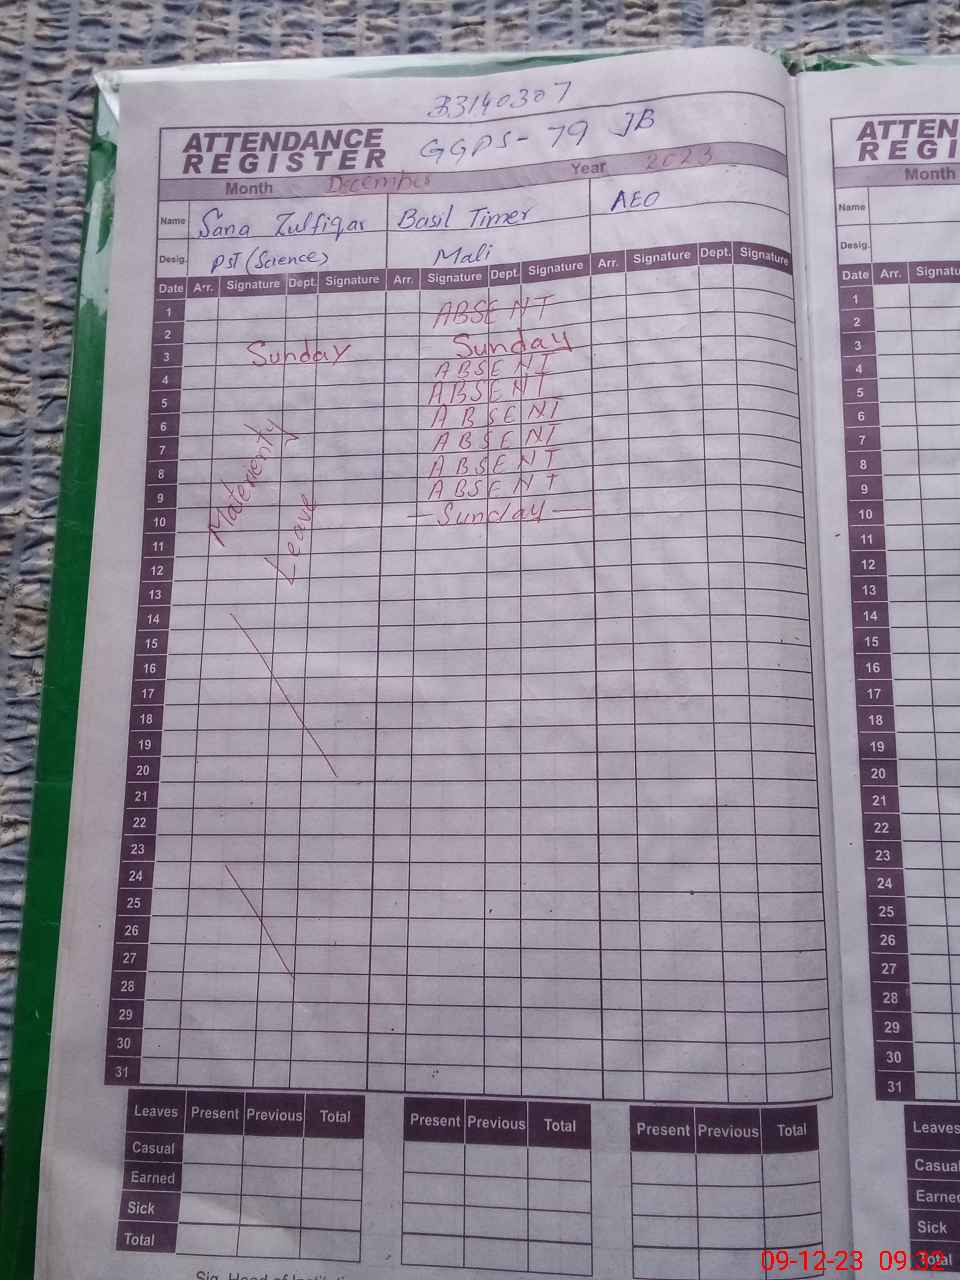 33140307
ATTENDANCE REGISTER GGPS-79 JB
Month December Year 2023
Name Sana Zulfiqar Basil Timer AEO
Desig. PST (Science) Mali
Date Arr. Signature Dept. Signature Arr. Signature Dept. Signature Arr. Signature Dept. Signature
1 ABSENT
2
3 Sunday Sunday
4 ABSENT
5 ABSENT
6 ABSENT
7 ABSENT
8 ABSENT
9 ABSENT
10 Sunday
Materienty Leave
11
12
13
14
15
16
17
18
19
20
21
22
23
24
25
26
27
28
29
30
31
Leaves Present Previous Total Present Previous Total Present Previous Total
Casual
Earned
Sick
Total
Sig. Head of
ATTEN
REGI
Month
Name
Desig.
Date Arr. Signatu
1
2
3
4
5
6
7
8
9
10
11
12
13
14
15
16
17
18
19
20
21
22
23
24
25
26
27
28
29
30
31
Leaves
Casua
Earne
Sick
Total
09-12-23 09:32